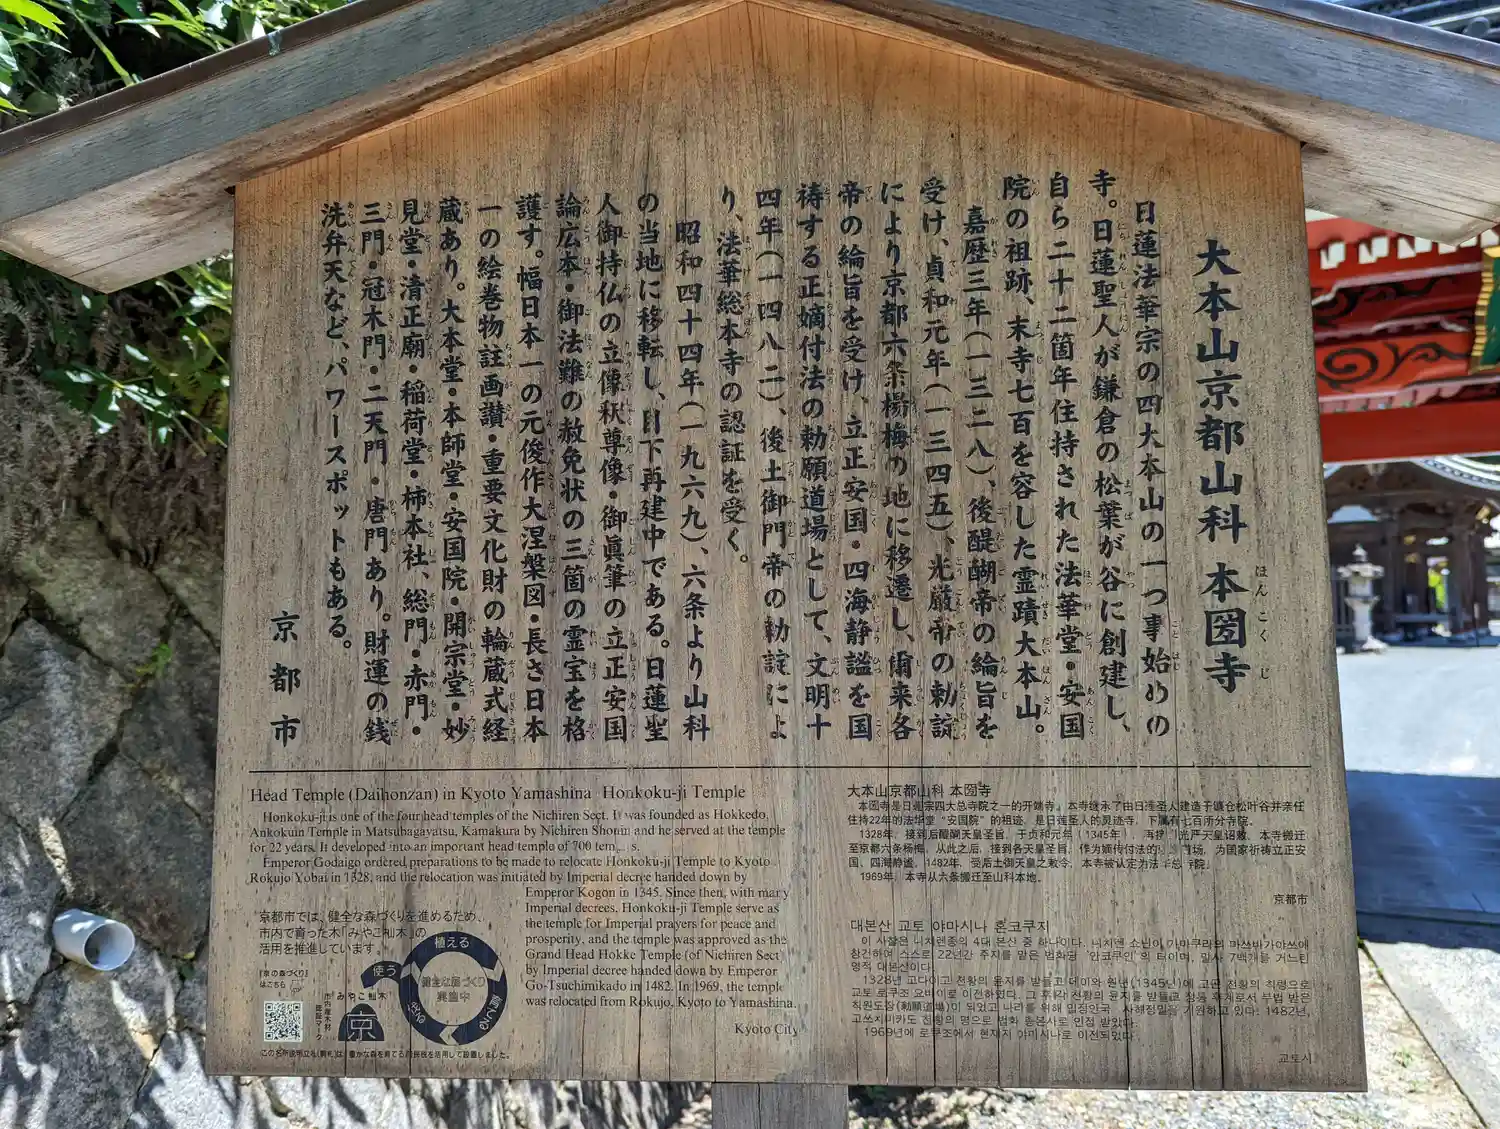 大本山京都山科 本圀寺
日蓮法華宗の四大本山の一つ事始めの
寺。日蓮聖人が鎌倉の松葉が谷に創建し、
自ら二十二箇年住持された法華堂・安国
院の祖跡、末寺七百を容した霊蹟大本山。
嘉歴三年(一三二八)、後醍醐帝の綸旨を
受け、貞和元年(一三四五)、光厳帝の勅諚
により京都六条楊梅の地に移遷し、爾来各
帝の綸旨を受け、立正安国・四海静謐を国
祷する正嫡付法の勅願道場として、文明十
四年(一四八二)、後土御門帝の勅諚によ
り、法華総本寺の認証を受く。
昭和四十四年(一九六九)、六条より山科
の当地に移転し、目下再建中である。日蓮聖
人御持仏の立像釈尊像・御眞筆の立正安国
論広本・御法難の赦免状の三箇の霊宝を格
護す。幅日本一の元俊作大涅槃図・長さ日本
一の絵巻物註画讃・重要文化財の輪蔵式経
蔵あり。大本堂・本師堂・安国院・開宗堂・妙
見堂・清正廟・稲荷堂・柿本社、総門・赤門・
三門・冠木門・二天門・唐門あり。財運の銭
洗弁天など、パワースポットもある。
京都市
Head Temple (Daihonzan) in Kyoto Yamashina Honkoku-ji Temple
Honkoku-ji is one of the four head temples of the Nichiren Sect. It was founded as Hokkedo,
Ankokuin Temple in Matsubagayatsu, Kamakura by Nichiren Shonin and he served at the temple
for 22 years. It developed into an important head temple of 700
Emperor Godaigo ordered preparations to be made to relocate Honkoku-ji Temple to Kyoto
Rokujo Yobai in 1328, and the relocation was initiated by Imperial decree handed down by
Emperor Kogon in 1345. Since then, with many
Imperial decrees, Honkoku-ji Temple serve as
the temple for Imperial prayers for peace and
prosperity, and the temple was approved as the
Grand Head Hokke Temple (of Nichiren Sect)
by Imperial decree handed down by Emperor
Go-Tsuchimikado in 1482. In 1969, the temple
was relocated from Rokujo, Kyoto to Yamashina.
Kyoto City
京都市では、健全な森づくりを進めるため、
市内で育った木「みやこ杣木」の
活用を推進しています。
「京の森づくり」
はこちら
市内産木材
認証マーク
みやこ杣木
京
植える
使う
健全な森づくり
実施中
この名所説明立札(駒札)は、豊かな森を育てる府民税を活用して設置しました。
大本山京都山科 本圀寺
本圀寺是日莲宗四大总寺院之一的开端寺。本寺继承了由日莲圣人建造于镰仓松叶谷并亲任
住持22年的法华堂“安国院”的祖迹，是日莲圣人的灵迹寺，下属有七百所分寺院。
1328年，接到后醍醐天皇圣旨，于贞和元年（1345年），再接 光严天皇诏敕，本寺搬迁
至京都六条杨梅，从此之后，接到各天皇圣旨，作为嫡传付法的 场，为国家祈祷立正安
国，四海静谧，1482年，受后土御天皇之敕令，本寺被认定为法 总寺院。
1969年，本寺从六条搬迁至山科本地。
京都市
대본산 교토 야마시나 혼코쿠지
이 사찰은 니치렌종의 4대 본산 중 하나이다. 니치렌 쇼닌이 가마쿠라의 마쓰바가야쓰에
창건하여 스스로 22년간 주지를 맡은 법화당 ‘안코쿠인’의 터이며, 말사 7백개를 거느린
영적 대본산이다.
1328년 고다이고 천황의 윤지를 받들고 데이와 원년(1345년)에 고곤 천황의 칙령으로
교토 로쿠조 요바이로 이전하였다. 그 후 각 천황의 윤지를 받들고 정통 후계로서 부법 받은
칙원도장(勅願道場)이 되었고 나라를 위해 입정안국 사해정밀을 기원하고 있다. 1482년,
고쓰치미카도 천황의 명으로 법화 총본사로 인정 받았다.
1969년에 로쿠조에서 현재지 야마시나로 이전되었다.
교토시